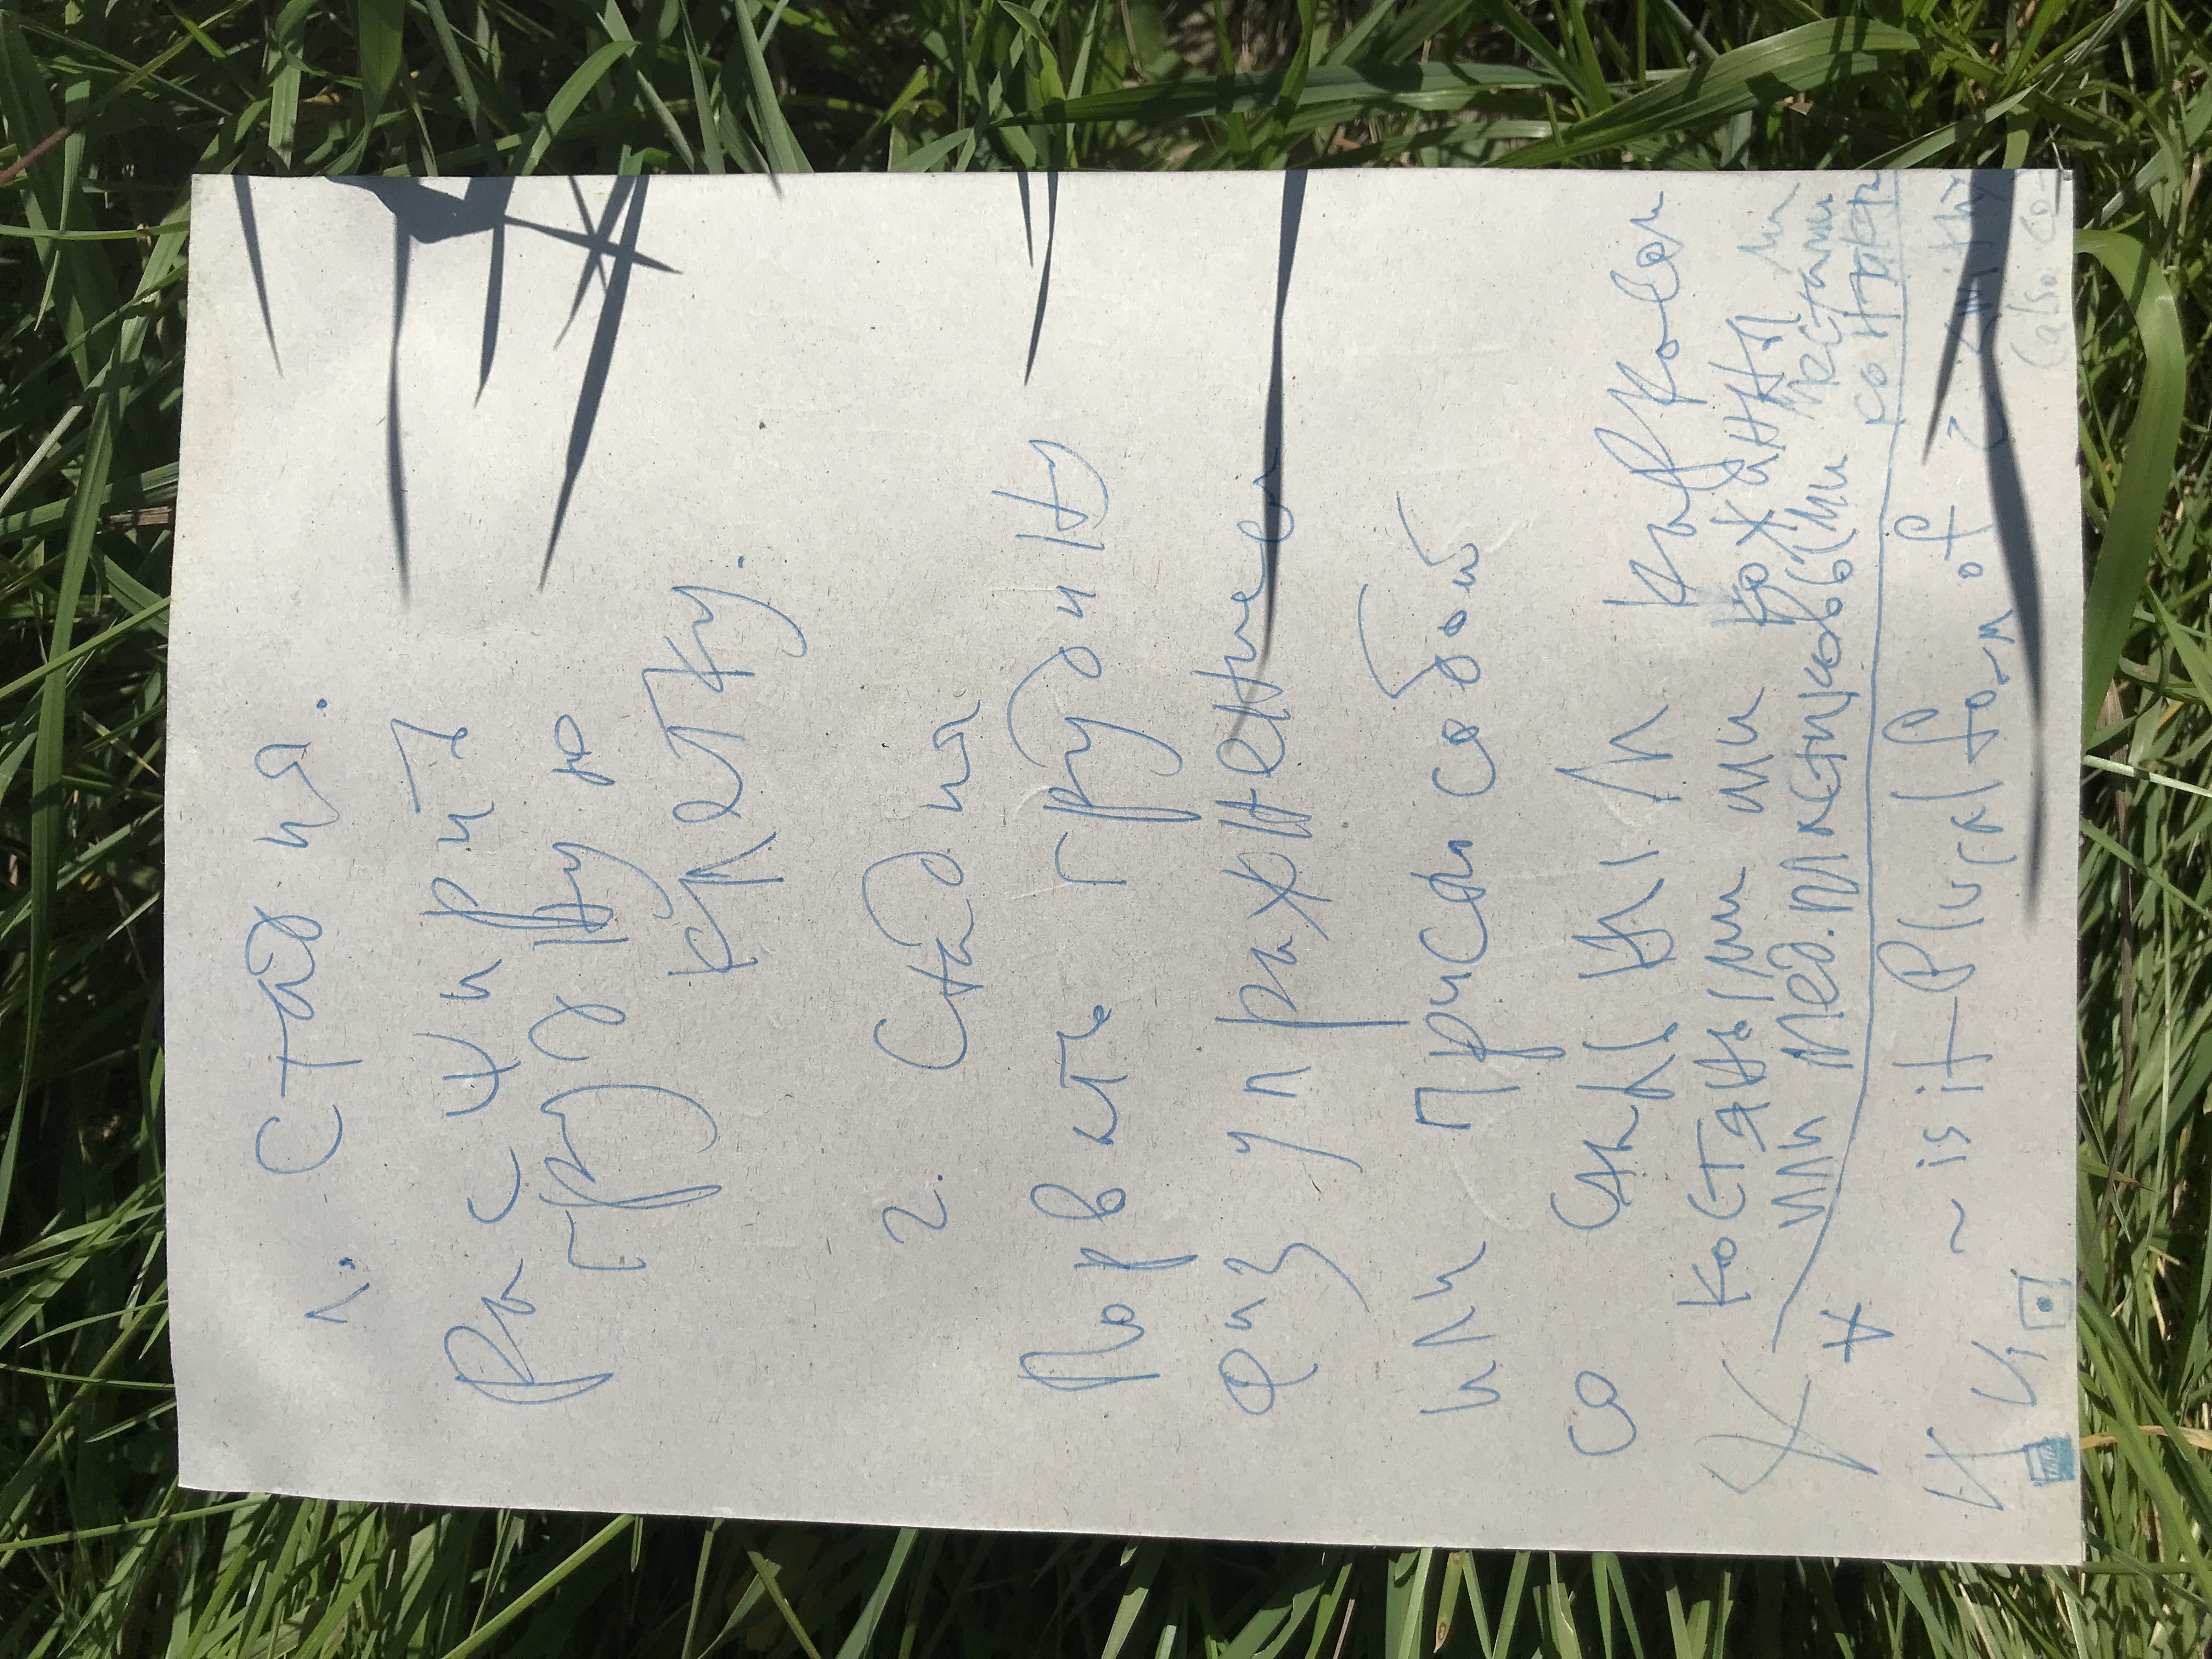 1. Стадия.
Расширить
грудную
клетку.
2. Стадия
Порвать грудину
физ упражнением
или приспособой
со стальным каркасом
костяными или кожанны ми
или мед. пластиковыми местами
контакта
~ is it Plural form of с <with>
(also со-